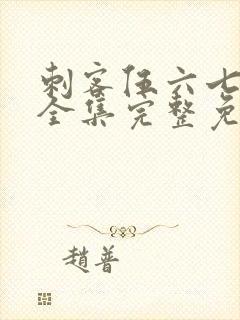 刺客伍六七
全集完整免
趙普